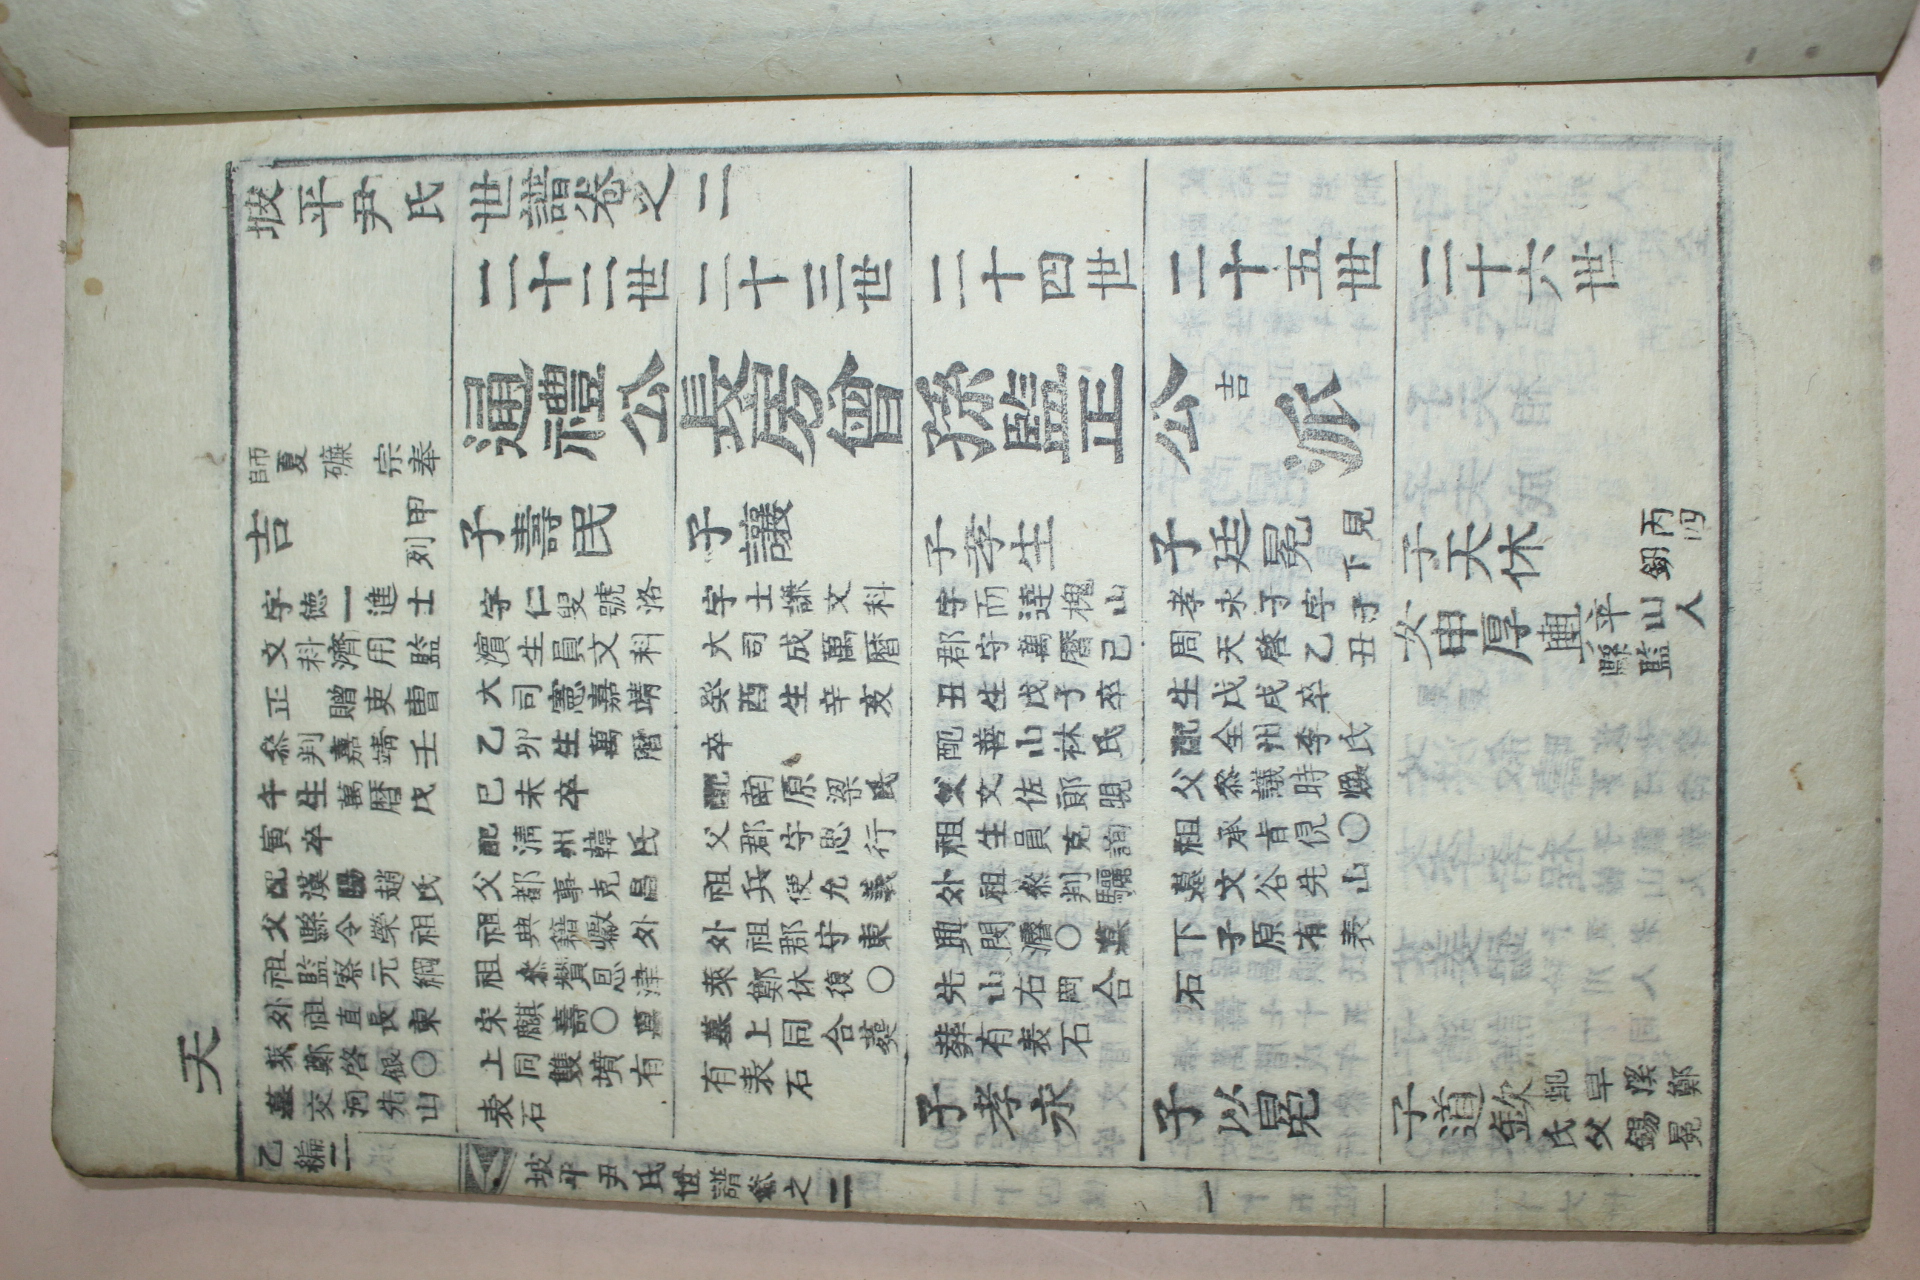 坡平尹氏世譜卷之二
二十二世 二十三世 二十四世 二十五世 二十六世
通禮公長房曾孫監正公吉派
師夏
礪
宗奉
吉
列甲
字德一進士
文科濟用監
正贈吏曹
參判嘉靖壬
午生萬曆戊
寅卒
配漢陽趙氏
父縣令榮祖
祖監察元綱
外祖直長東
萊鄭啓銀○
墓交河先山
子壽民
字仁叟號洛
濱生員文科
大司憲嘉靖
乙卯生萬曆
己未卒
配淸州韓氏
父都事克昌
祖典籍外
祖參贊恩津
宋麒壽○墓
上同雙墳有
表石
子讓
字士謙文科
大司成萬曆
癸酉生辛亥
卒
配南原梁氏
父郡守思行
祖兵使允義
外祖郡守東
萊鄭休復○
墓上同合葬
有表石
子孝生
字而達槐山
郡守萬曆己
丑生戊子卒
配善山林氏
父文佐郞睍
祖生員克詢
外祖參判驪
興閔濬○墓
先山右岡合
葬有表石
子孝永
子廷冕
下見
孝永子字于
周天啓乙丑
生戊戌卒
配全州李氏
父參議時煥
祖承旨倪○
墓文谷先山
下子原有表
石
子以冕
子天休
丙四
女申厚
平山人
縣監
子道欽
配草溪鄭
氏父錫冕
天
乙編二
坡平尹氏世譜卷之二
一